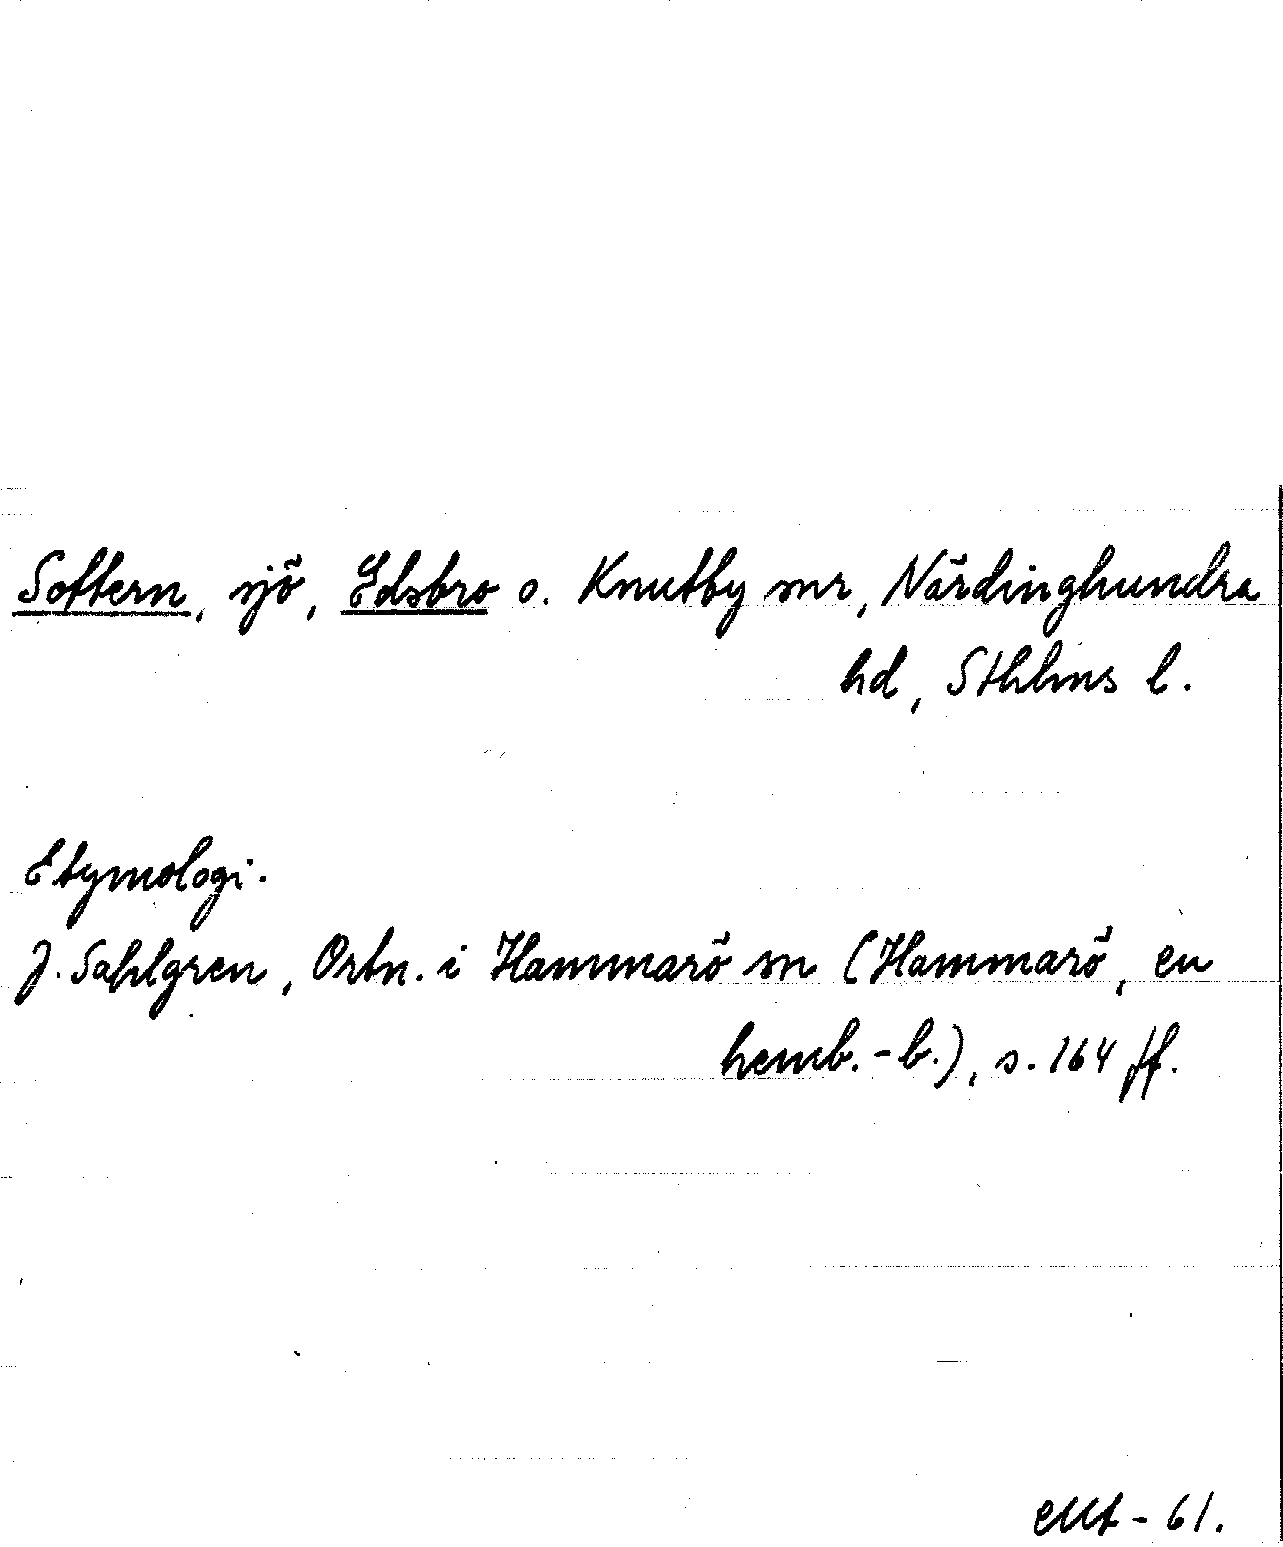 Sottern, sjö, Edsbro o. Knutby snr, Närdinghundra
hd, Sthlms l.
Etymologi.
J. Sahlgren, Ortn. i Hammarö sn (Hammarö, en
hemb.-b.), s. 164 ff.
- 61.